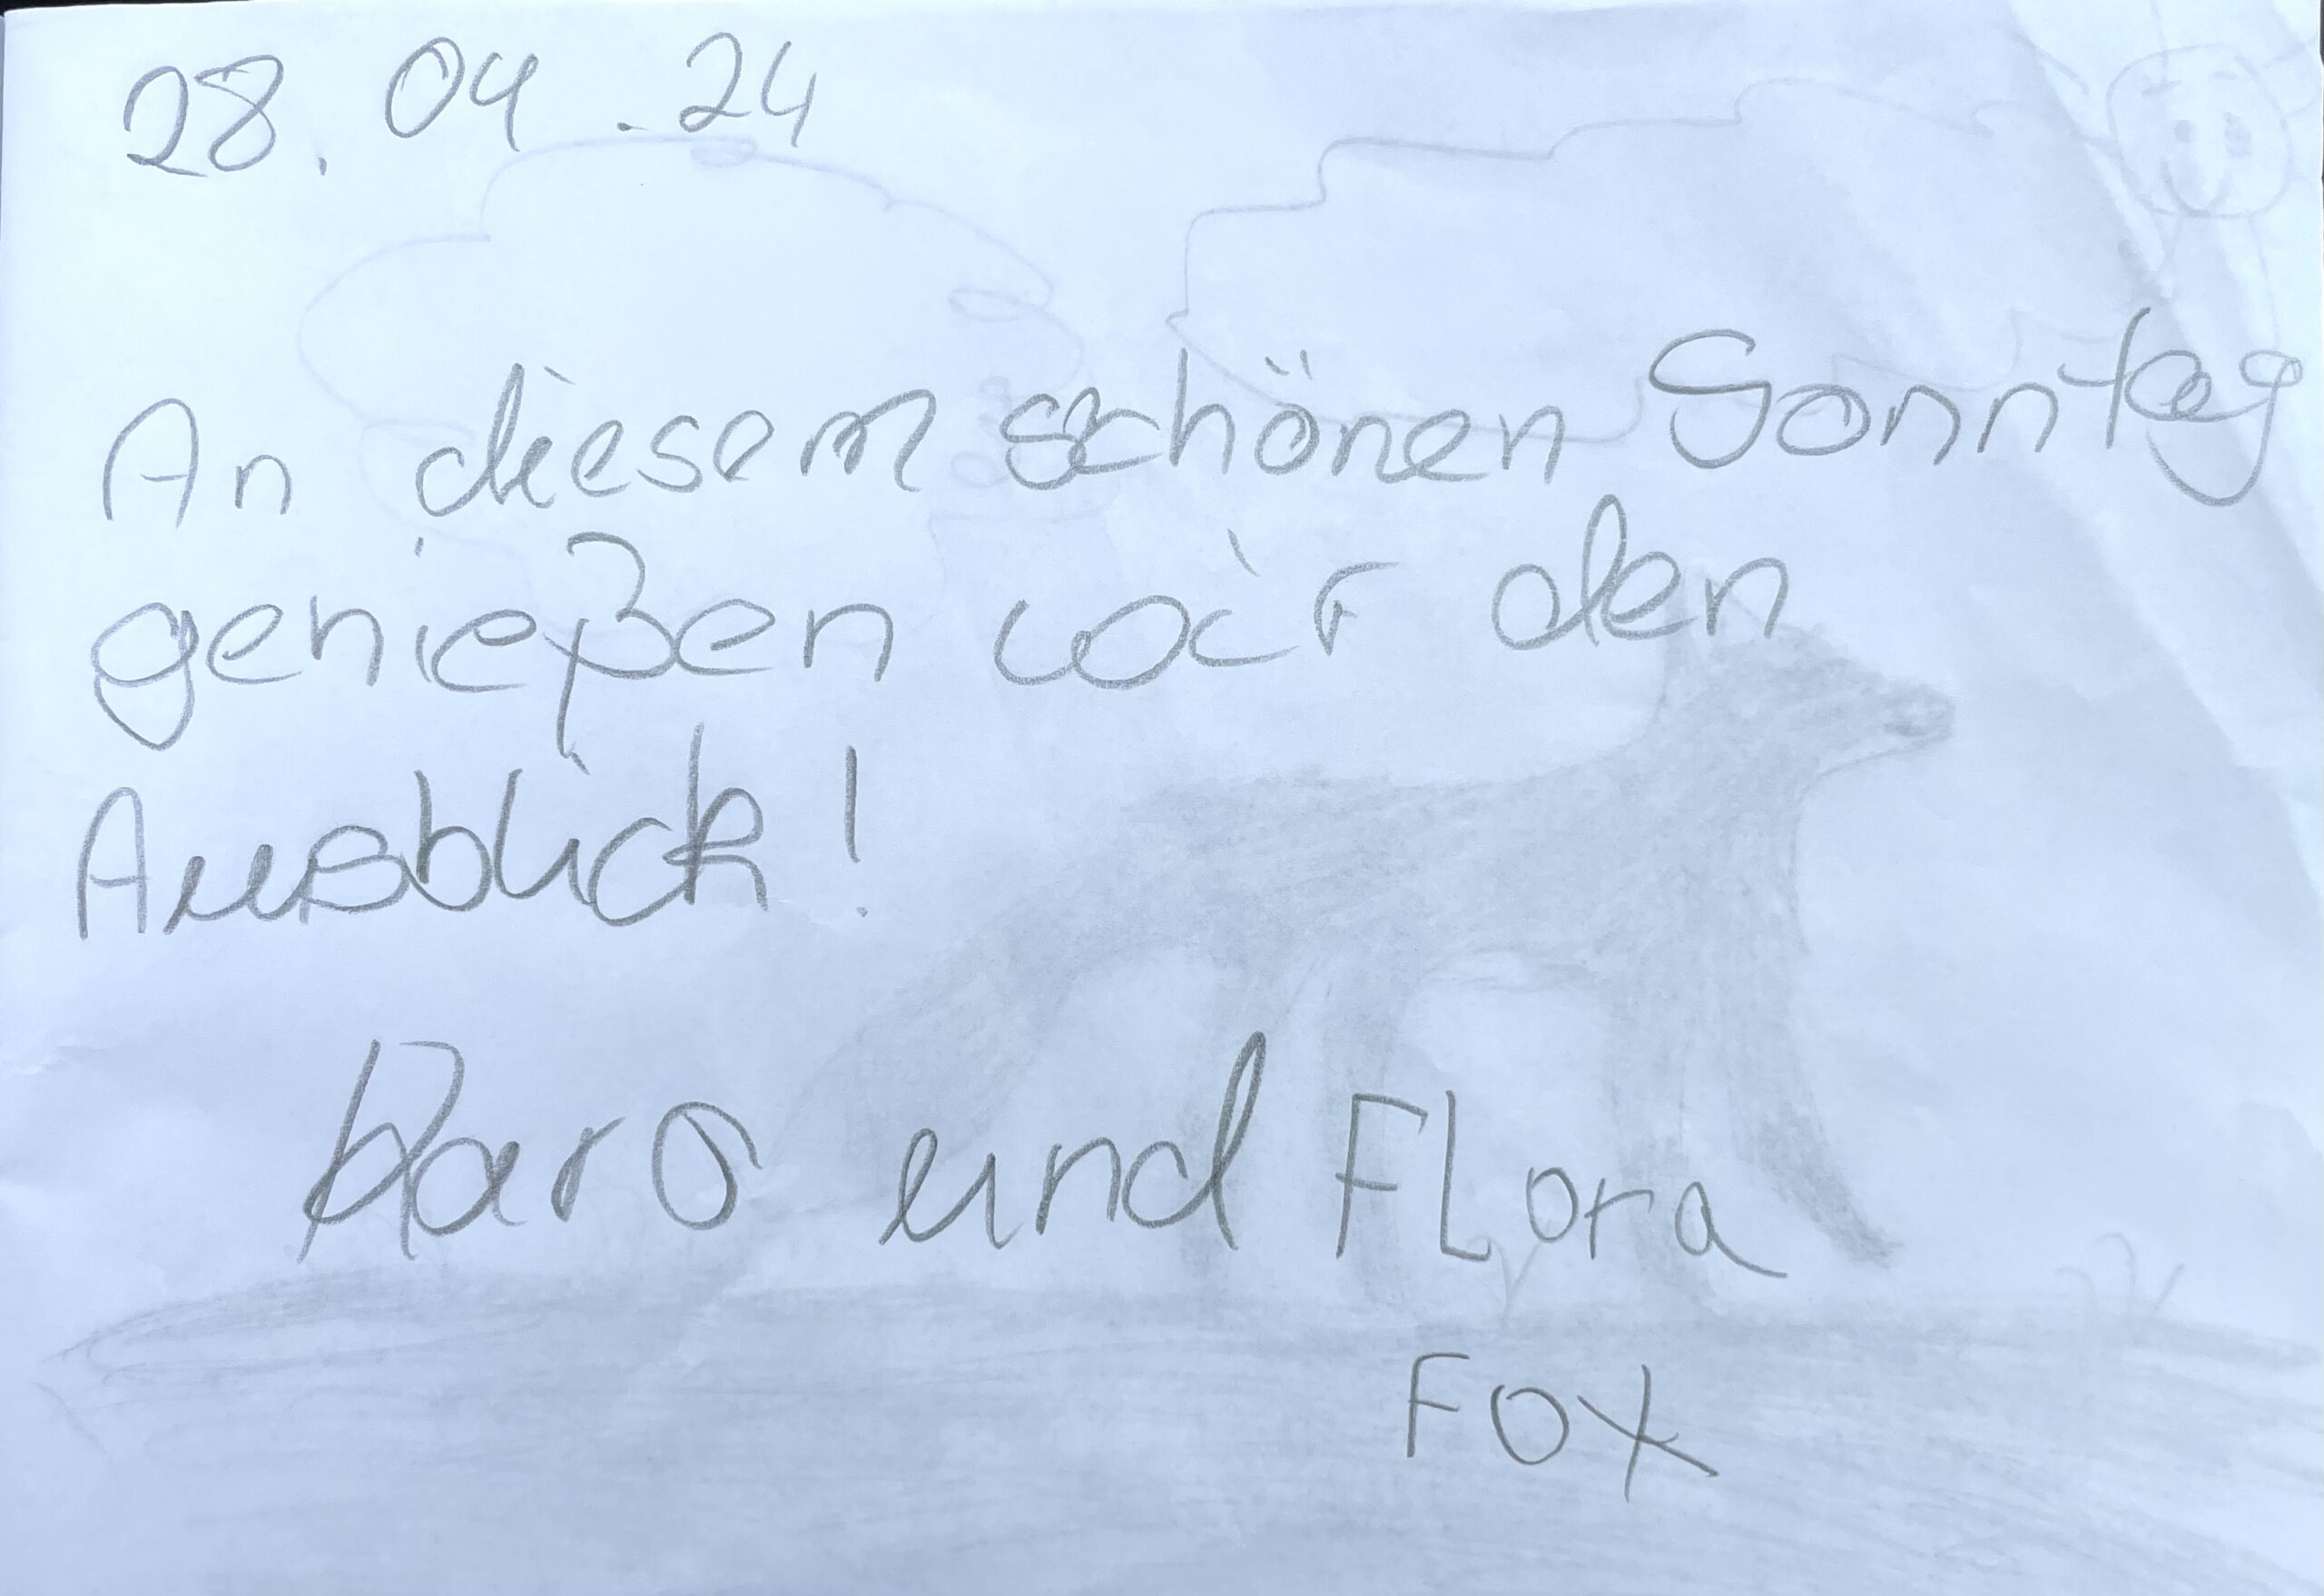 28.04.24
An diesem schönen Sonntag
genießen wir den
Ausblick!
Karo und FLora
FOX